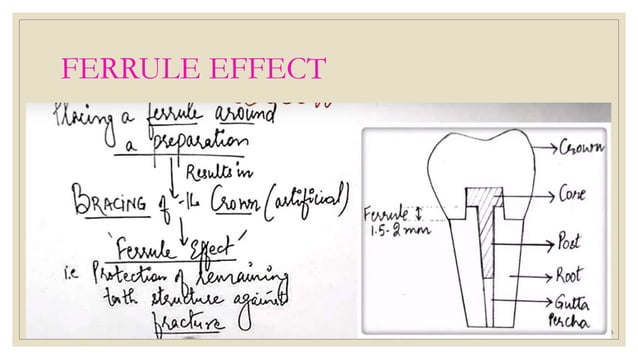 FERRULE EFFECT
Placing a ferrule around
a preparation
Results in
BRACING of the Crown (artificial)
'Ferrule Effect'
i.e Protection of remaining
tooth structure against
fracture
Crown
Core
Ferrule
1.5-2mm
Post
Root
Gutta
Percha